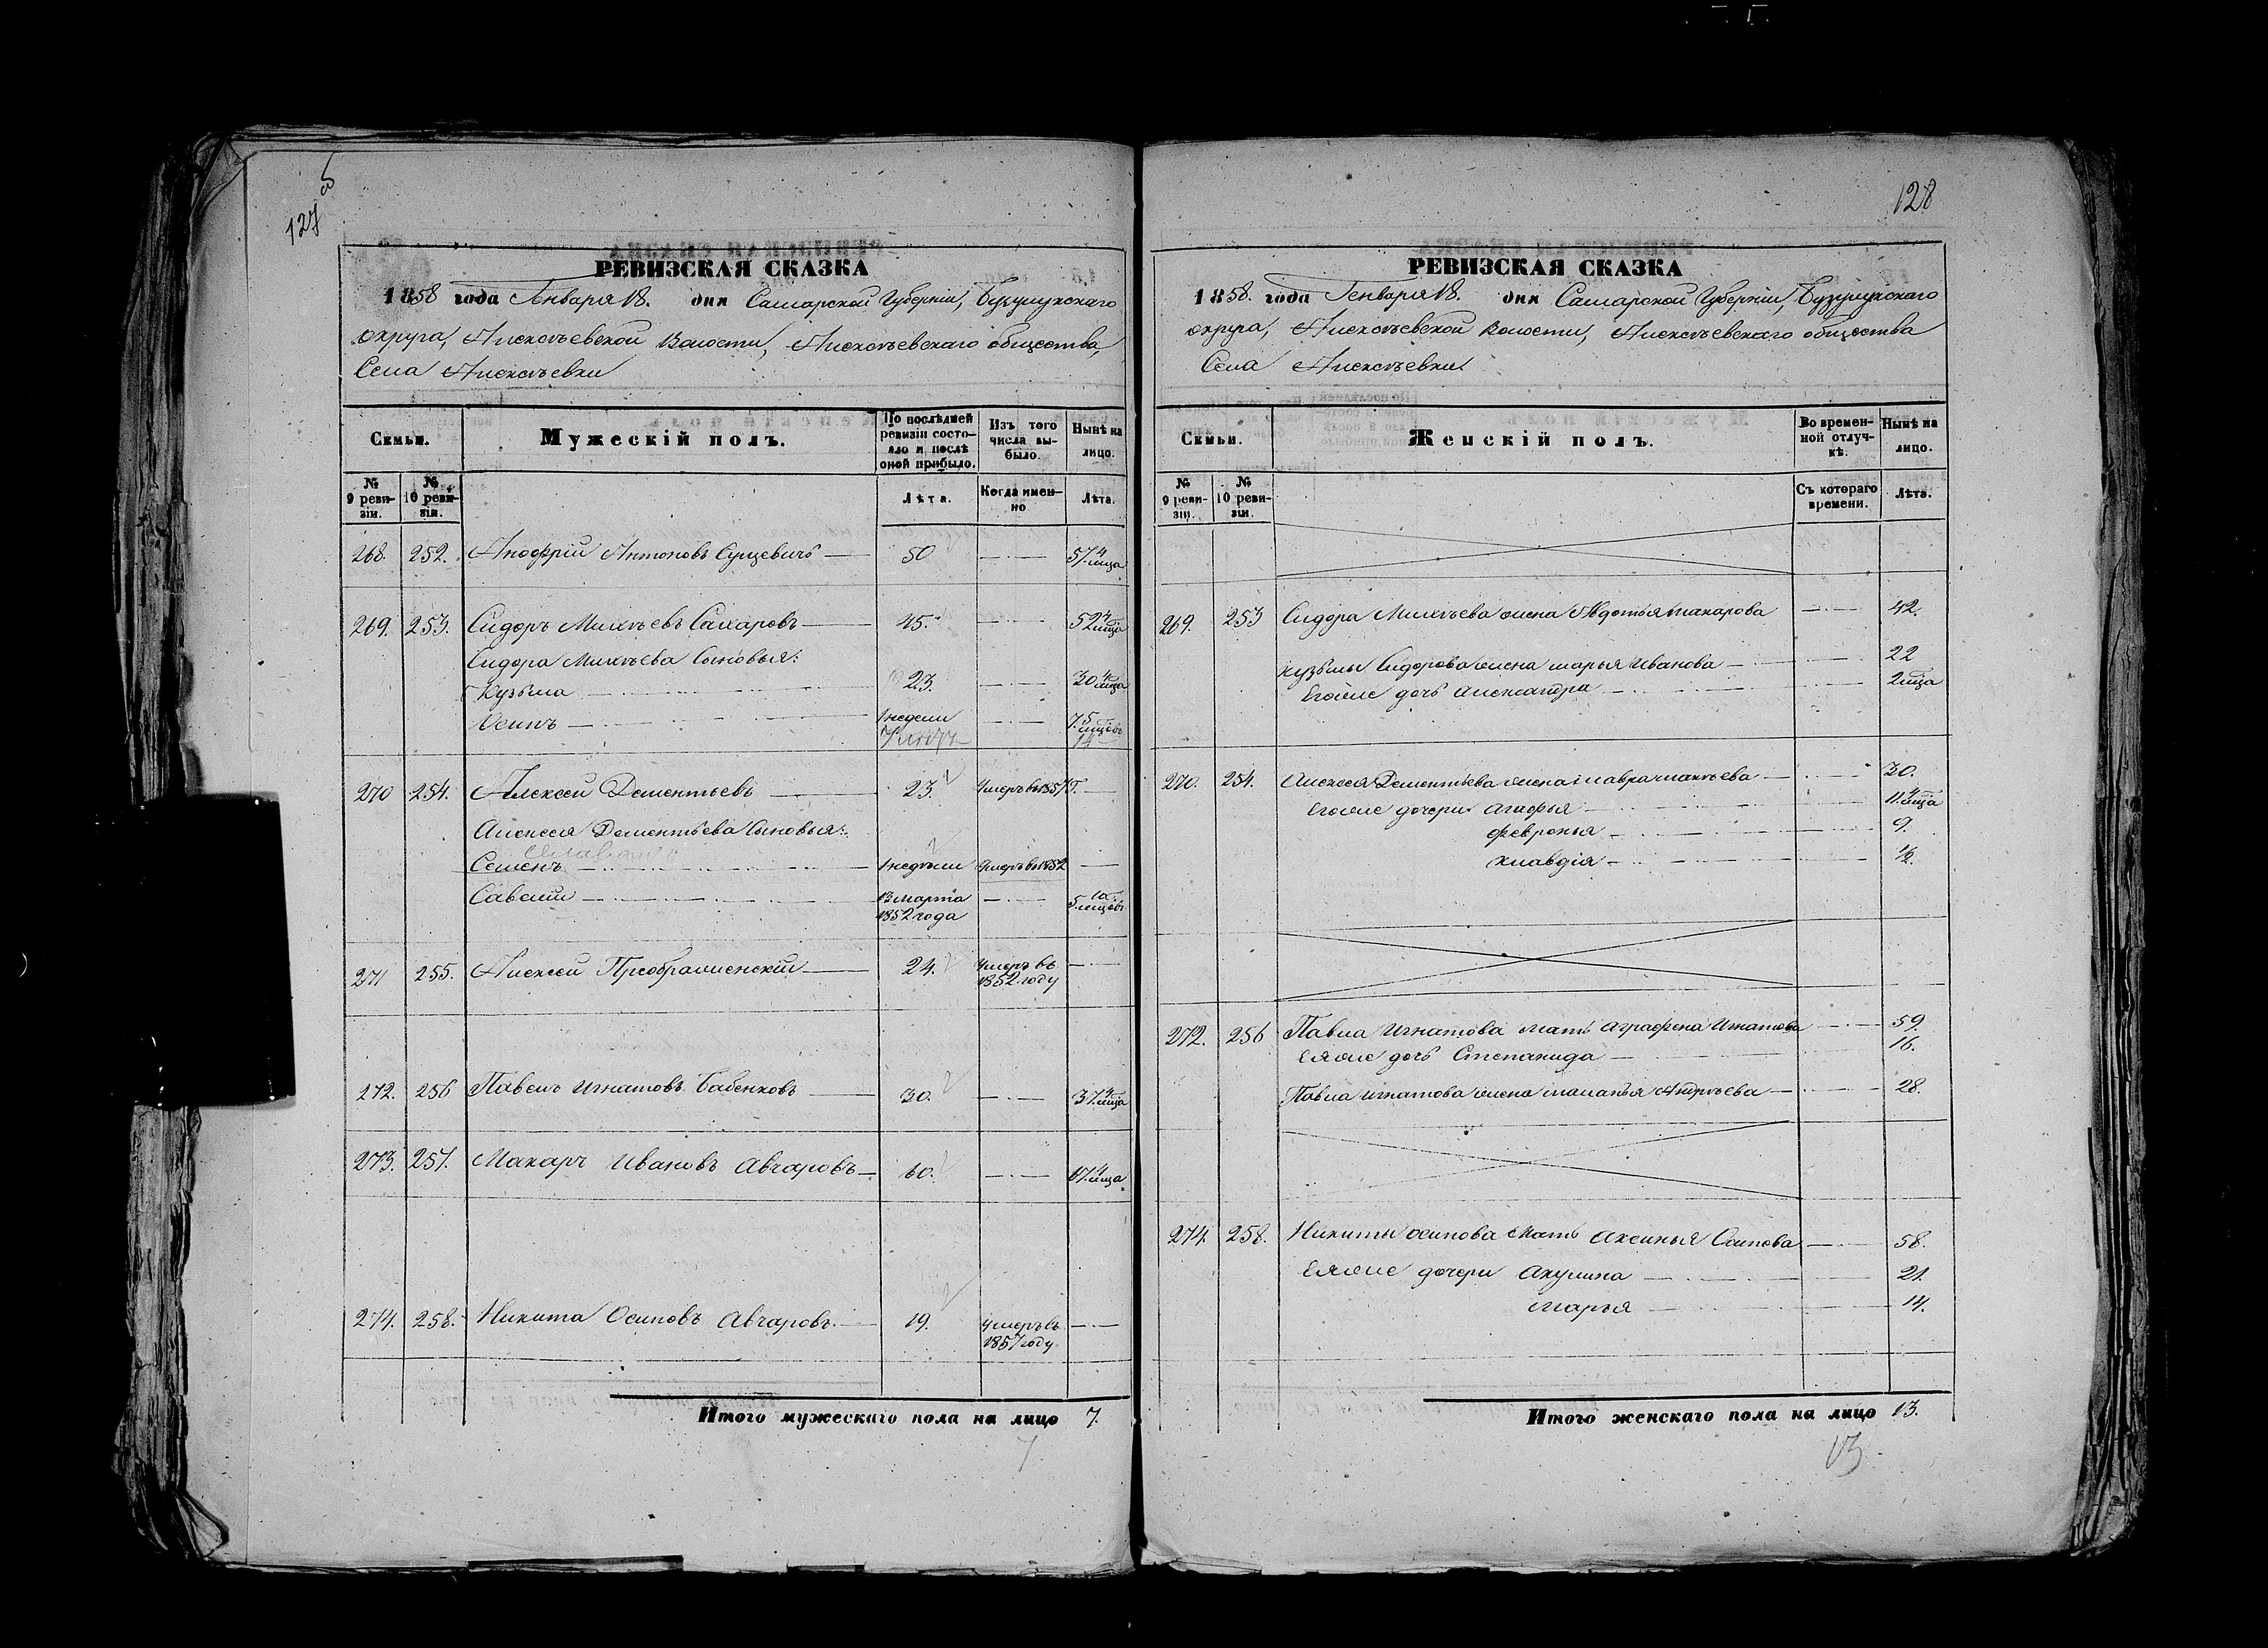 127 об
РЕВИЗСКАЯ СКАЗКА
1858 года Генваря 18. дня Самарской Губерніи, Бузулукскаго
округа, Алексѣевской Волости, Алексѣевскаго общества,
Села Алексѣевки
Семьи.
Мужескій полъ.
По послѣдней ревизіи состояло и послѣ оной прибыло.
Изъ того числа выбыло.
Нынѣ на лицо.
№ 9 ревизіи.
№ 10 ревизіи.
Лѣта.
Когда именно
Лѣта.
268. 252. Анофрій Антоновъ 50 57. 4 мца
269. 253. Сидоръ Михѣевъ Сахаровъ 45. 52 4 мца
Сидора Михѣева Сыновья:
Кузьма 23. 30 4 мца
Осипъ 1 недели 7. 5 мцовъ
14
270 254. Алексей Дементьевъ 23. Умеръ въ 1857 г.
Алексея Дементьева Сыновья:
Семенъ 1 недѣли Умеръ въ 1852
Савелій 13 марта 5. 10 мцовъ
1852 года
271 255. Алексей Преображенскій 24. Умеръ въ
1852 году
272. 256 Павелъ Игнатовъ Бабенковъ 30. 37. 4 мца
273. 257. Макаръ Ивановъ Авчаровъ 60. 67. 4 мца
274. 258. Никита Осиповъ Авчаровъ. 19. умеръ въ
1857 году
Итого мужескаго пола на лицо 7.
7
128
РЕВИЗСКАЯ СКАЗКА
1858. года Генваря 18. дня Самарской Губерніи, Бузулукскаго
округа, Алексѣевской Волости, Алексѣевскаго общества
Села Алексѣевки.
Семьи.
Женскій полъ.
Во временной отлучкѣ.
Нынѣ на лицо.
№ 9 ревизіи.
№ 10 ревизіи.
Съ котораго времени.
Лѣта.
269. 253 Сидора Михѣева жена Авдотья Макарова 42.
Кузьмы Сидорова жена Марья Иванова 22
Егоже дочь Александра 2 мца
270. 254. Алексея Дементьева жена Мавра 30.
Егоже дочери Агафья 11. 4 мца
Февронья 9.
Клавдія 1/2.
272. 256 Павла Игнатова мать Аграфена Игнатова 59.
Еяже дочь Степанида 16.
Павла Игнатова жена Маланья Андрѣева 28.
274. 258. Никиты Осипова Мать Аксинья Осипова 58.
Еяже дочери Акулина 21.
Марья 14.
Итого женскаго пола на лицо 13.
13